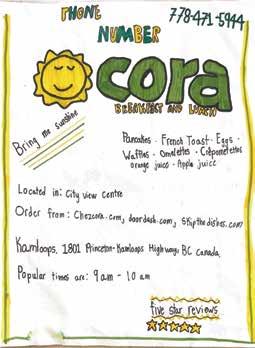 PHONE NUMBER
778-471-5944
cora
BREAKFAST AND LUNCH
Bring me sunshine
Pancakes - French Toast - Eggs -
Waffles - Omelettes - Crêpomelettes
orange juice - Apple juice
Located in: City view Centre
Order from: Chezcora.com, doordash.com, Skipthedishes.com
Kamloops, 1801 Princeton-Kamloops Highway, BC Canada,
Popular times are: 9am - 10 am
five star reviews